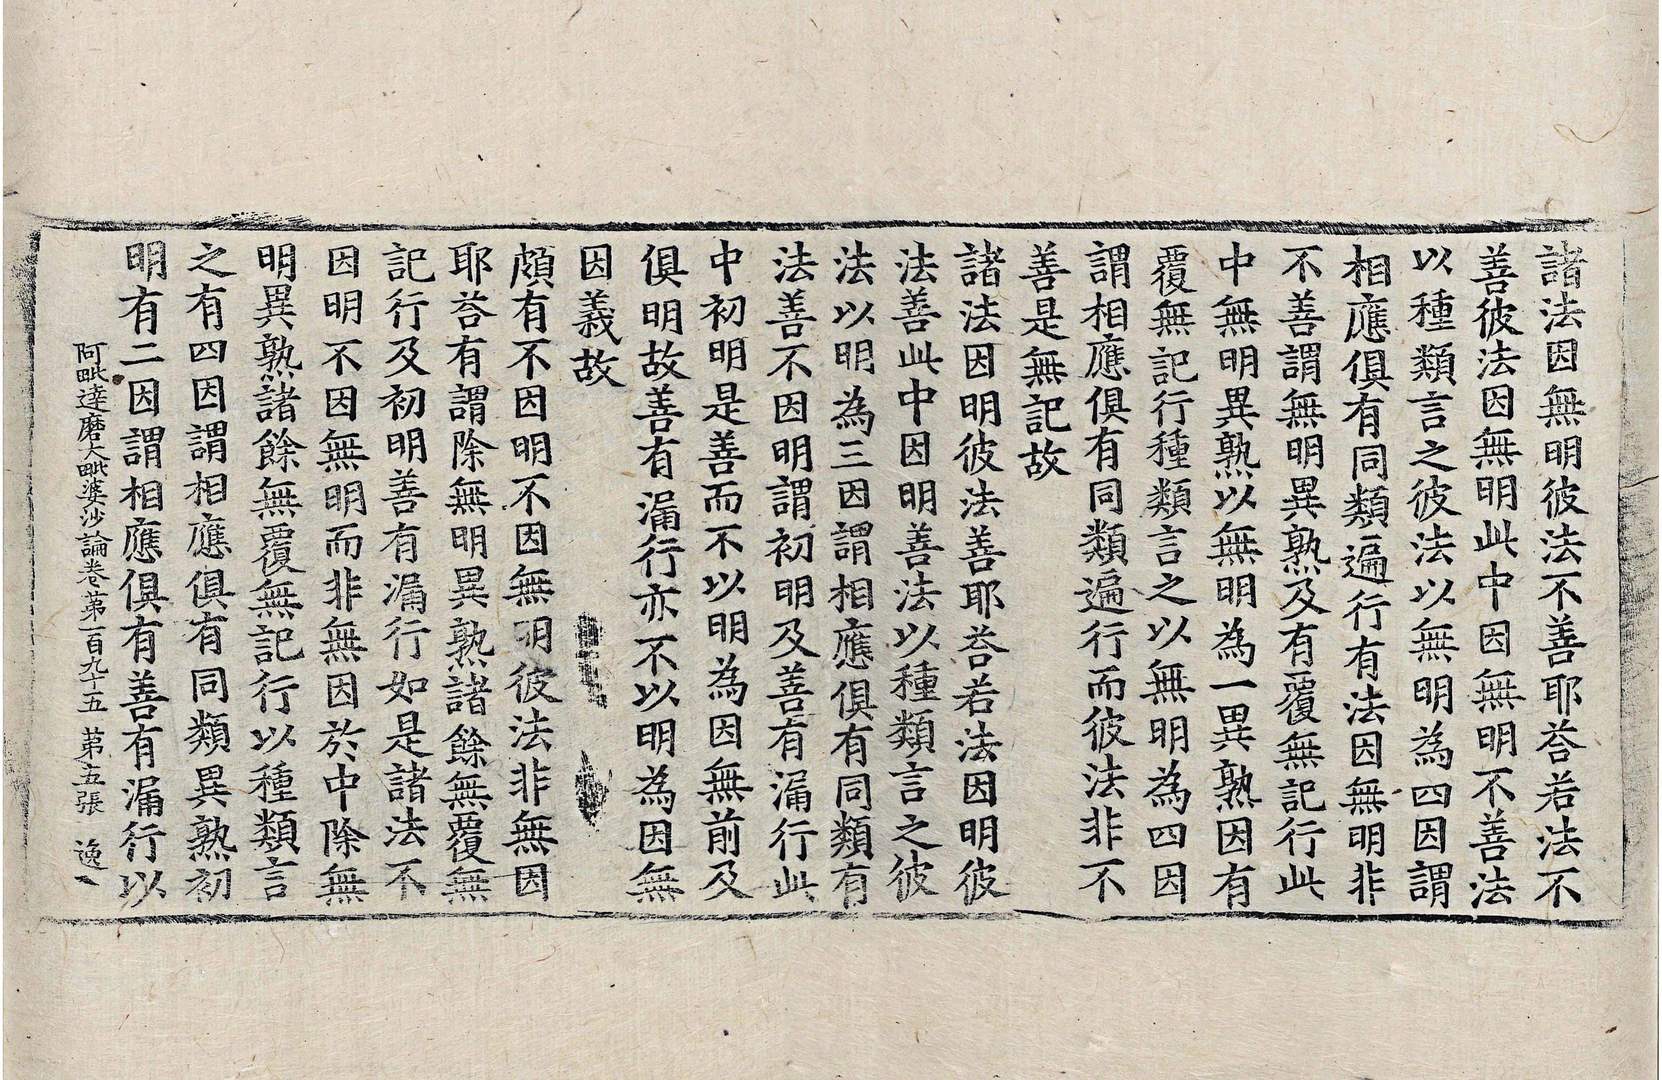 諸法因無明彼法不善耶荅若法不
善彼法因無明此中因無明不善法
以種類言之彼法以無明為四因謂
相應俱有同類遍行有法因無明非
不善謂無明異熟及有覆無記行此
中無明異熟以無明為一異熟因有
覆無記行種類言之以無明為四因
謂相應俱有同類遍行而彼法非不
善是無記故
諸法因明彼法善耶荅若法因明彼
法善此中因明善法以種類言之彼
法以明為三因謂相應俱有同類有
法善不因明謂初明及善有漏行此
中初明是善而不以明為因無前及
俱明故善有漏行亦不以明為因無
因義故
頗有不因明不因無明彼法非無因
耶荅有謂除無明異熟諸餘無覆無
記行及初明善有漏行如是諸法不
因明不因無明而非無因於中除無
明異熟諸餘無覆無記行以種類言
之有四因謂相應俱有同類異熟初
明有二因謂相應俱有善有漏行以
阿毗達磨大毗婆沙論卷第一百九十五 第五張 逸